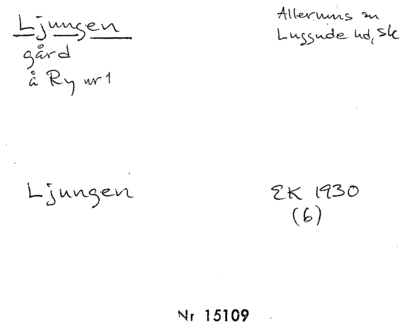 Ljungen
Allerums sn
gård
Luggude hd, Sk
å Ry nr 1
Ljungen
EK 1930
(6)
Nr 15109